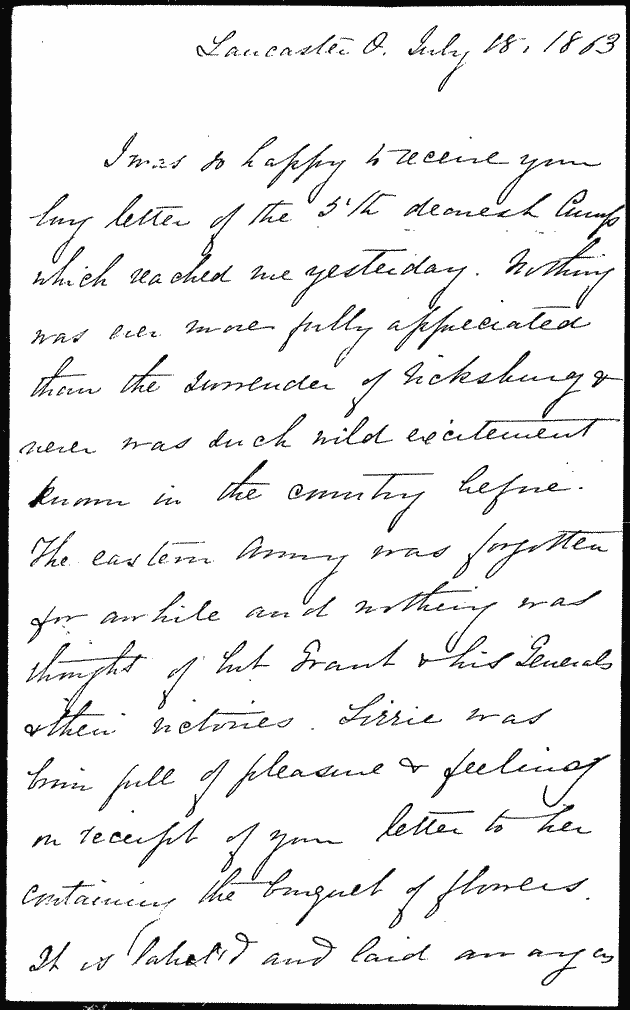 Lancaster O. July 18, 1863
I was so happy to receive your
long letter of the 5th dearest Cump
which reached me yesterday. Nothing
was ever more fully appreciated
than the surrender of Vicksburg &
never was such wild excitement
known in the country before.
The eastern Army was forgotten
for awhile and nothing was
thought of but Grant & his Generals
& their victories. Lizzie was
brim full of pleasure & feeling
on receipt of your letter to her
containing the bouquet of flowers.
It is label'd and laid away as